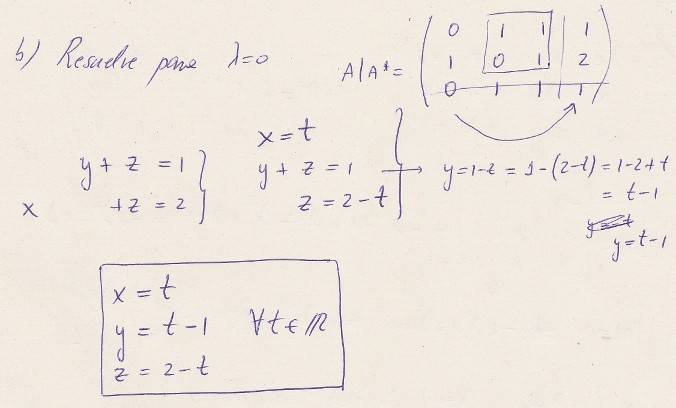 b) Resuelve para λ=0
A|A* = ( 0 1 1 | 1
1 0 1 | 2
0 1 1 | 1 )
y + z = 1 }
x +z = 2 }
x = t
y + z = 1 → y = 1-z = 1-(2-t) = 1-2+t
z = 2-t
= t-1
y = t
y = t-1
x = t
y = t-1 ∀t∈ℝ
z = 2-t